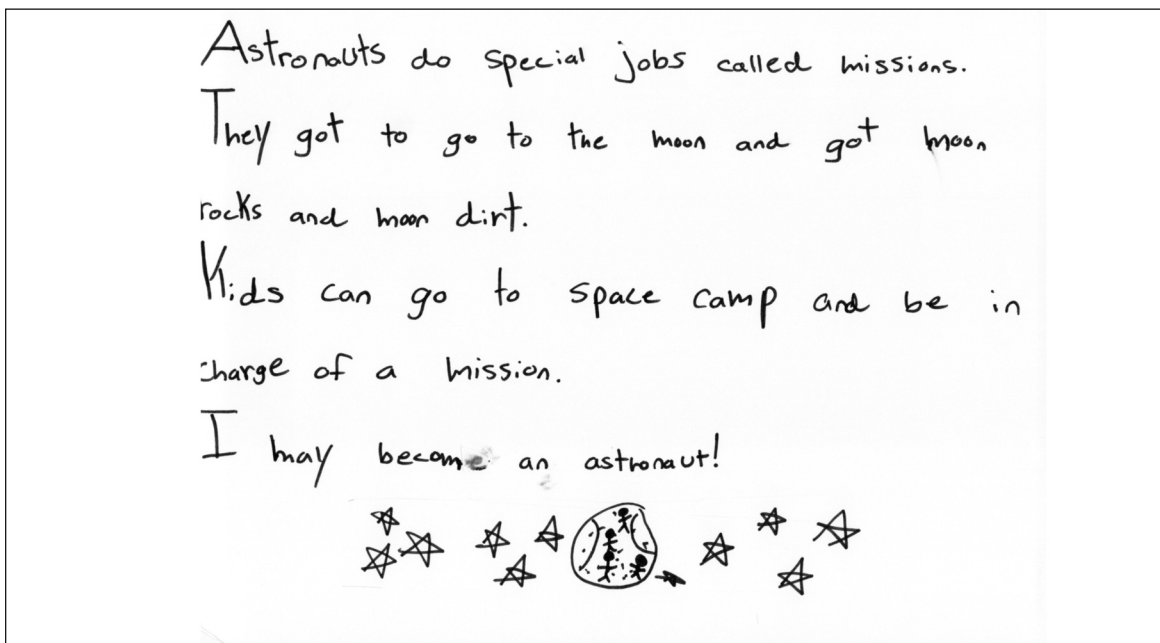 Astronauts do special jobs called missions.
They got to go to the moon and got moon
rocks and moon dirt.
Kids can go to space camp and be in
charge of a mission.
I may become an astronaut!